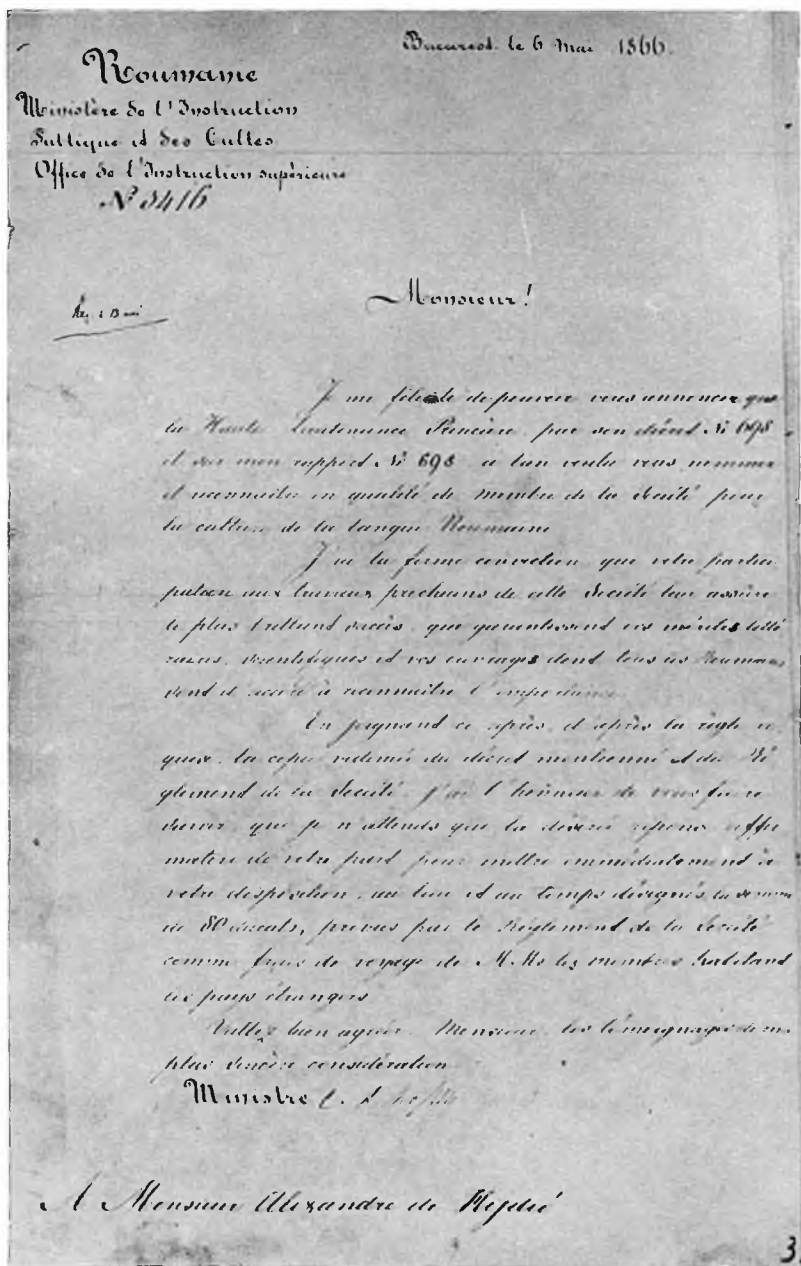 Bucarest le 6 Mai 1866.
Roumanie
Ministère de l'Instruction
Publique et des Cultes
Office de l'Instruction supérieure
№ 3416
Monsieur!
J me félicite de pouvoir vous annoncer que
la Haute Lieutenance Princière par son décret № 698
et sur mon rapport № 698 a bien voulu vous nommer
et reconnaitre en qualité de membre de la Société pour
la culture de la langue Roumaine
J'ai la ferme conviction que votre partici
pation aux travaux prochains de cette Société leur assure
le plus brillant succès, que garantissent vos mérites litté
raires, scientifiques et vos ouvrages dont tous les Roumains
à reconnaitre l'importance
En joignant ci après, et après la règle re
quise, la copie vidimée du décret mentionné et du Ré
glement de la Société, j'ai l'honneur de vous faire
savoir que je n'attends que la réponse affir
mative de votre part pour mettre immédiatement à
votre disposition, au lieu et au temps désignés la somme
de 80 ducats, prévus par le Règlement de la Société
comme frais de voyage de M.Ms les membres habitand
les pays étrangers
Veillez bien agréer Monsieur les témoignages de ma
plus sincère considération
Ministre C. A.
A Monsieur Alexandre de Hejdeé
3